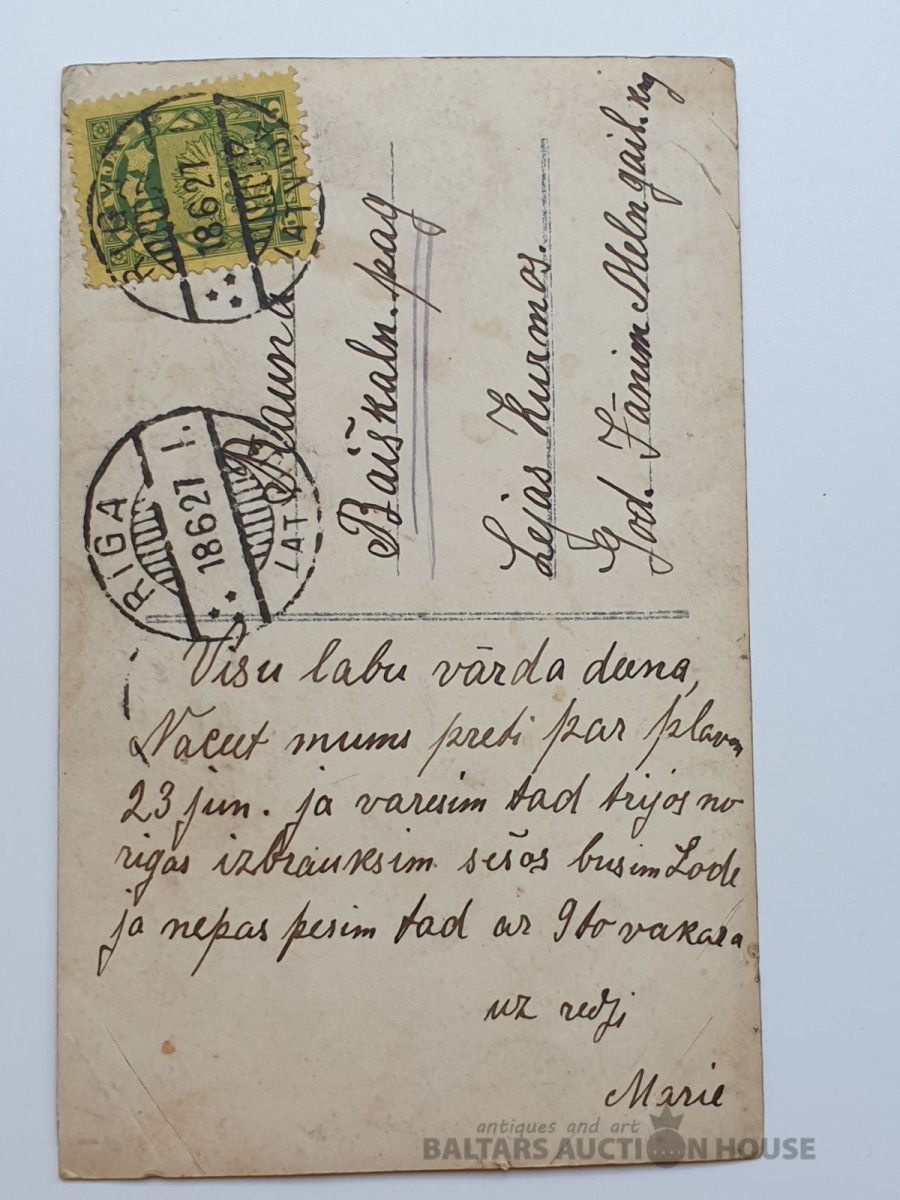 LATVIJA
RIGA
18 6 27
LATV
RIGA
18 6 27 I.
LATV
Rauna
Baiškaln. pag
Lejas Kurmos.
God. Jānim Melngail. kng
Visu labu vārda deena,
Naceet mums preti par plavm
23 jun. ja varesim tad trijos no
rigas izbrauksim sešos busim Lode
ja nepaspesim tad ar 9to vakara
uz redzi
Marie
antiques and art
BALTARS AUCTION HOUSE